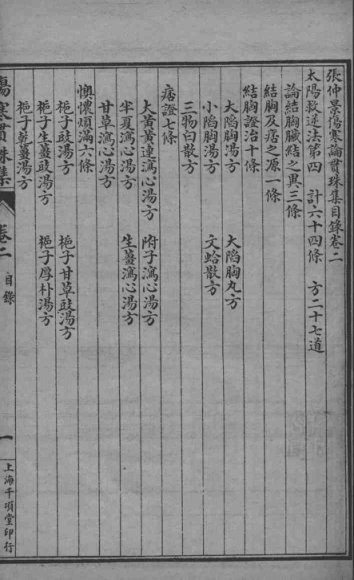 張仲景傷寒論貫珠集目錄卷二
太陽救逆法第四 計六十四條 方二十七道
論結胸臟結之異三條
結胸及痞之源一條
結胸證治十條
大陷胸湯方 大陷胸丸方
小陷胸湯方 文蛤散方
三物白散方
痞證七條
大黃黃連瀉心湯方 附子瀉心湯方
半夏瀉心湯方 生薑瀉心湯方
甘草瀉心湯方
懊憹煩滿六條
梔子豉湯方 梔子甘草豉湯方
梔子生薑豉湯方 梔子厚朴湯方
梔子乾薑湯方
傷寒貫珠集 卷二 目錄 一 上海千頃堂印行